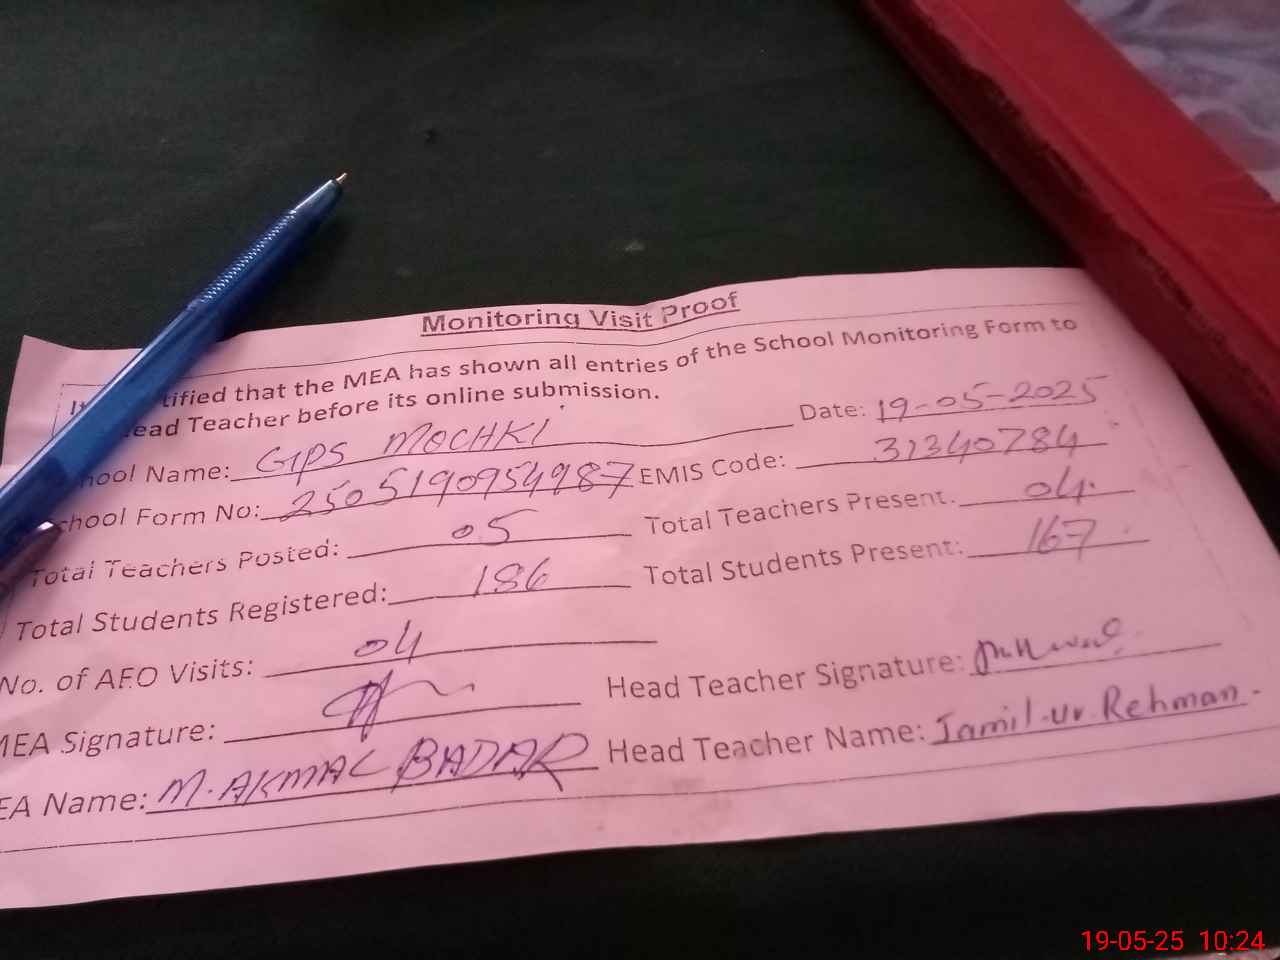 Monitoring Visit Proof
It tified that the MEA has shown all entries of the School Monitoring Form to
ead Teacher before its online submission.
hool Name: GPS MOCHKI Date: 19-05-2025
chool Form No: 2505190954987 EMIS Code: 31340784
Total Teachers Posted: 05 Total Teachers Present. 04.
Total Students Registered: 186 Total Students Present: 167.
No. of AEO Visits: 04
MEA Signature: Head Teacher Signature:
EA Name: M. AKMAL BADAR Head Teacher Name: Jamil-ur-Rehman.
19-05-25 10:24